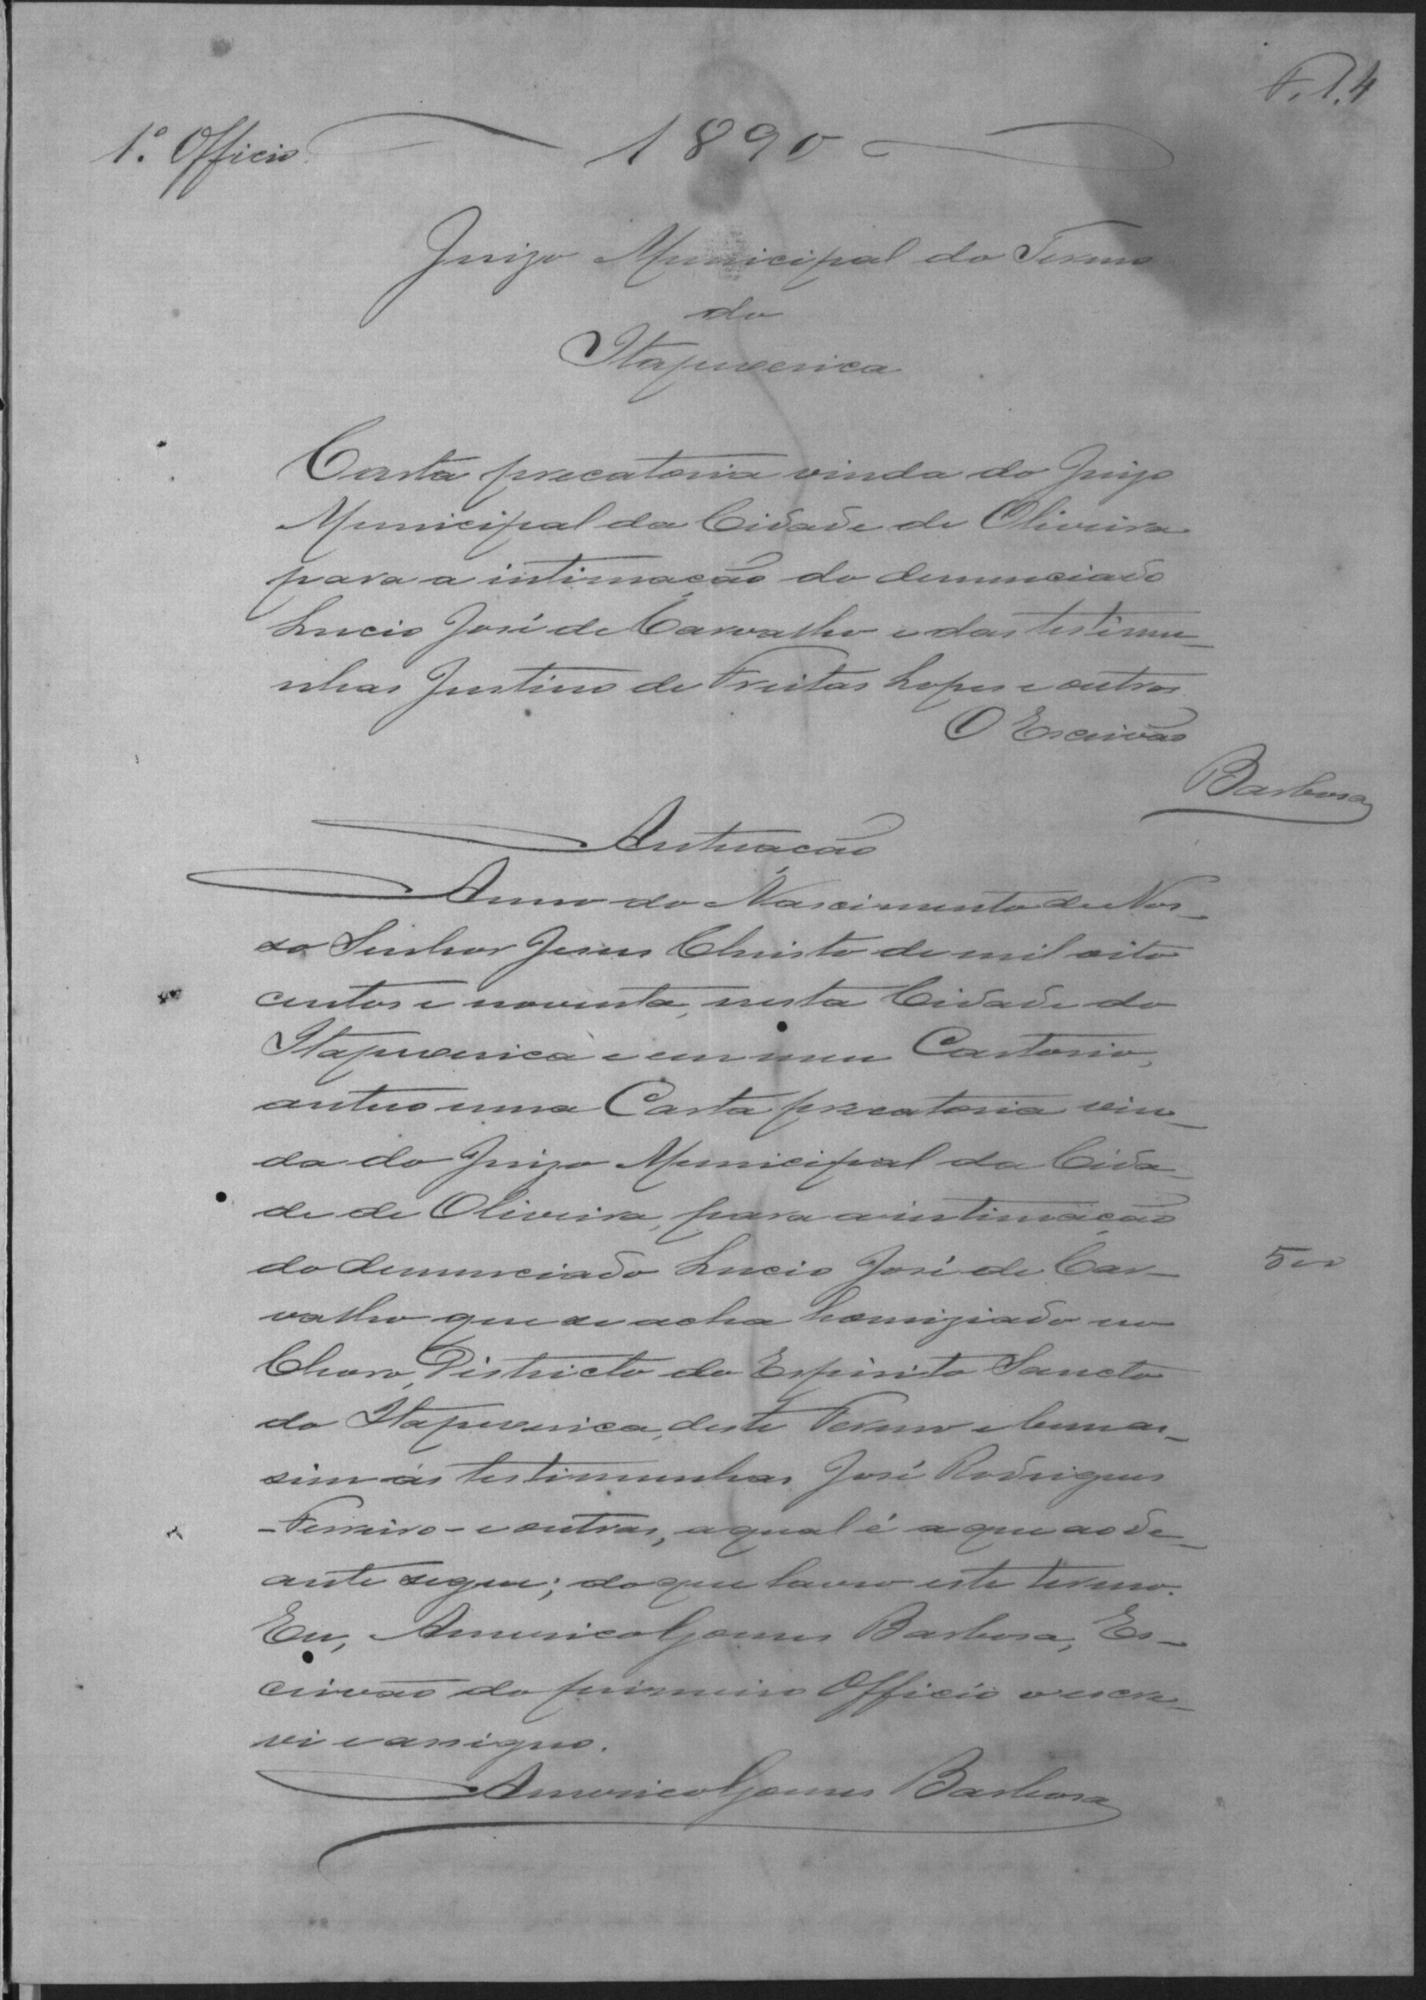 F. 1. 4
1º. Officio 1890
Juizo Municipal do Termo
da
Itapecerica
Carta precatoria vinda do Juizo
Municipal da Cidade de Oliveira
para a intimação do denunciado
Lucio José de Carvalho e das testemu_
nhas Justino de Freitas Lopes e outros
O Escrivão
Barbosa
Autuação
Anno do Nascimento de Nos_
so Senhor Jesus Christo de mil oito
centos e noventa, nesta Cidade da
Itapecerica e em meu Cartorio,
autuo uma Carta precatoria vin_
da do Juizo Municipal da Cida_
de de Oliveira, para a intimação
do denunciado Lucio José de Car_
valho que se acha homiziado no
Choro, Districto do Espirito Sancto
da Itapecerica, deste Termo e bem as_
sim ás testemunhas José Rodrigues
_Ferreiro_ e outras, a qual é a que ao de_
ante segue; do que lavro este termo.
Eu, Americo Gomes Barbosa, Es_
crivão do primeiro Officio o escre_
vi e assigno.
Americo Gomes Barbosa
500